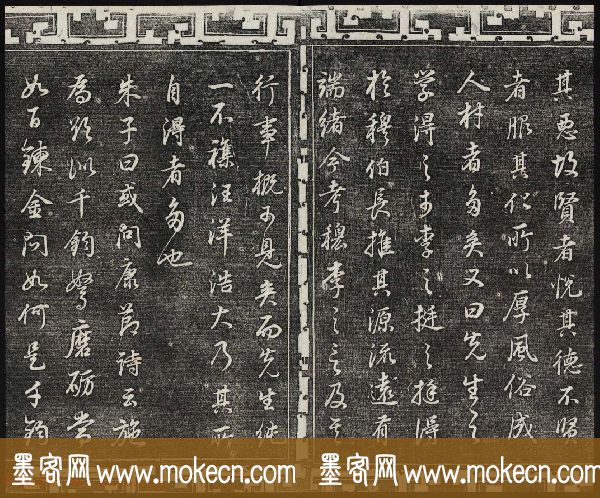 其惡故賢者悅其德不賢
者服其化所以厚風俗成
人材者多矣又曰先生之
學得之於李之挺之挺得
於穆伯長推其源流遠有
端緒今考穆李之言及其
行事概可見矣而先生純
一不雜汪洋浩大乃其所
自得者多也
朱子曰或問康節詩云施
為欲似千鈞弩磨礪當
如百鍊金問如何是千鈞
墨客网 www.mokecn.com 墨客网 www.mokecn.com